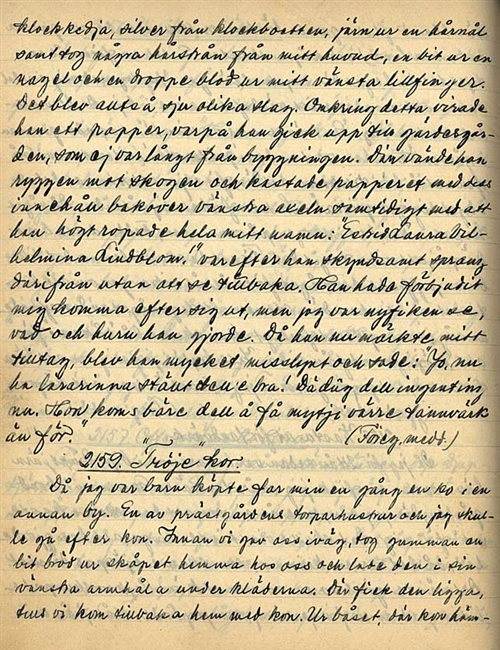 klockkedja, silver från klockboetten, järn ur en hårnål
samt tog några hårstrån från mitt huvud, en bit ur en
nagel och en droppe blod ur mitt vänstra lillfinger.
Det blev alltså sju olika slag. Omkring detta virade
han ett papper, varpå han gick upp till gärdesgår-
den, som ej var långt från byggningen. Där vände han
ryggen mot skogen och kastade papperet med dess
innehåll bakover vänstra axeln samtidigt med att
han högt ropade hela mitt namn: "Estrid Laura Vil-
helmina Lindblom!" varefter han skyndsamt sprang
därifrån utan att se tillbaka. Han hade förbjudit
mig komma efter sig ut, men jag var nyfiken se,
vad och huru han gjorde. Då han nu märkte mitt
tilltag, blev han mycket misslynt och sade: "Jo, nu
ha lärarinna ställt te bra! Dä dug dell ingenting
nu. Hon koms bäre dell å få mytji värre tannvärk
än för."
(Föreg. medd.)
2159. "Tröje" kor.
Då jag var barn köpte far min en gång en ko i en
annan by. En av prästgårdens torparhustrur och jag skul-
le gå efter kon. Innan vi gav oss iväg, tog gumman en
bit bröd ur skåpet hemma hos oss och lade den i sin
vänstra armhåla under kläderna. Där fick den ligga,
tills vi kom tillbaka hem med kon. Ur båset, där kon häm-